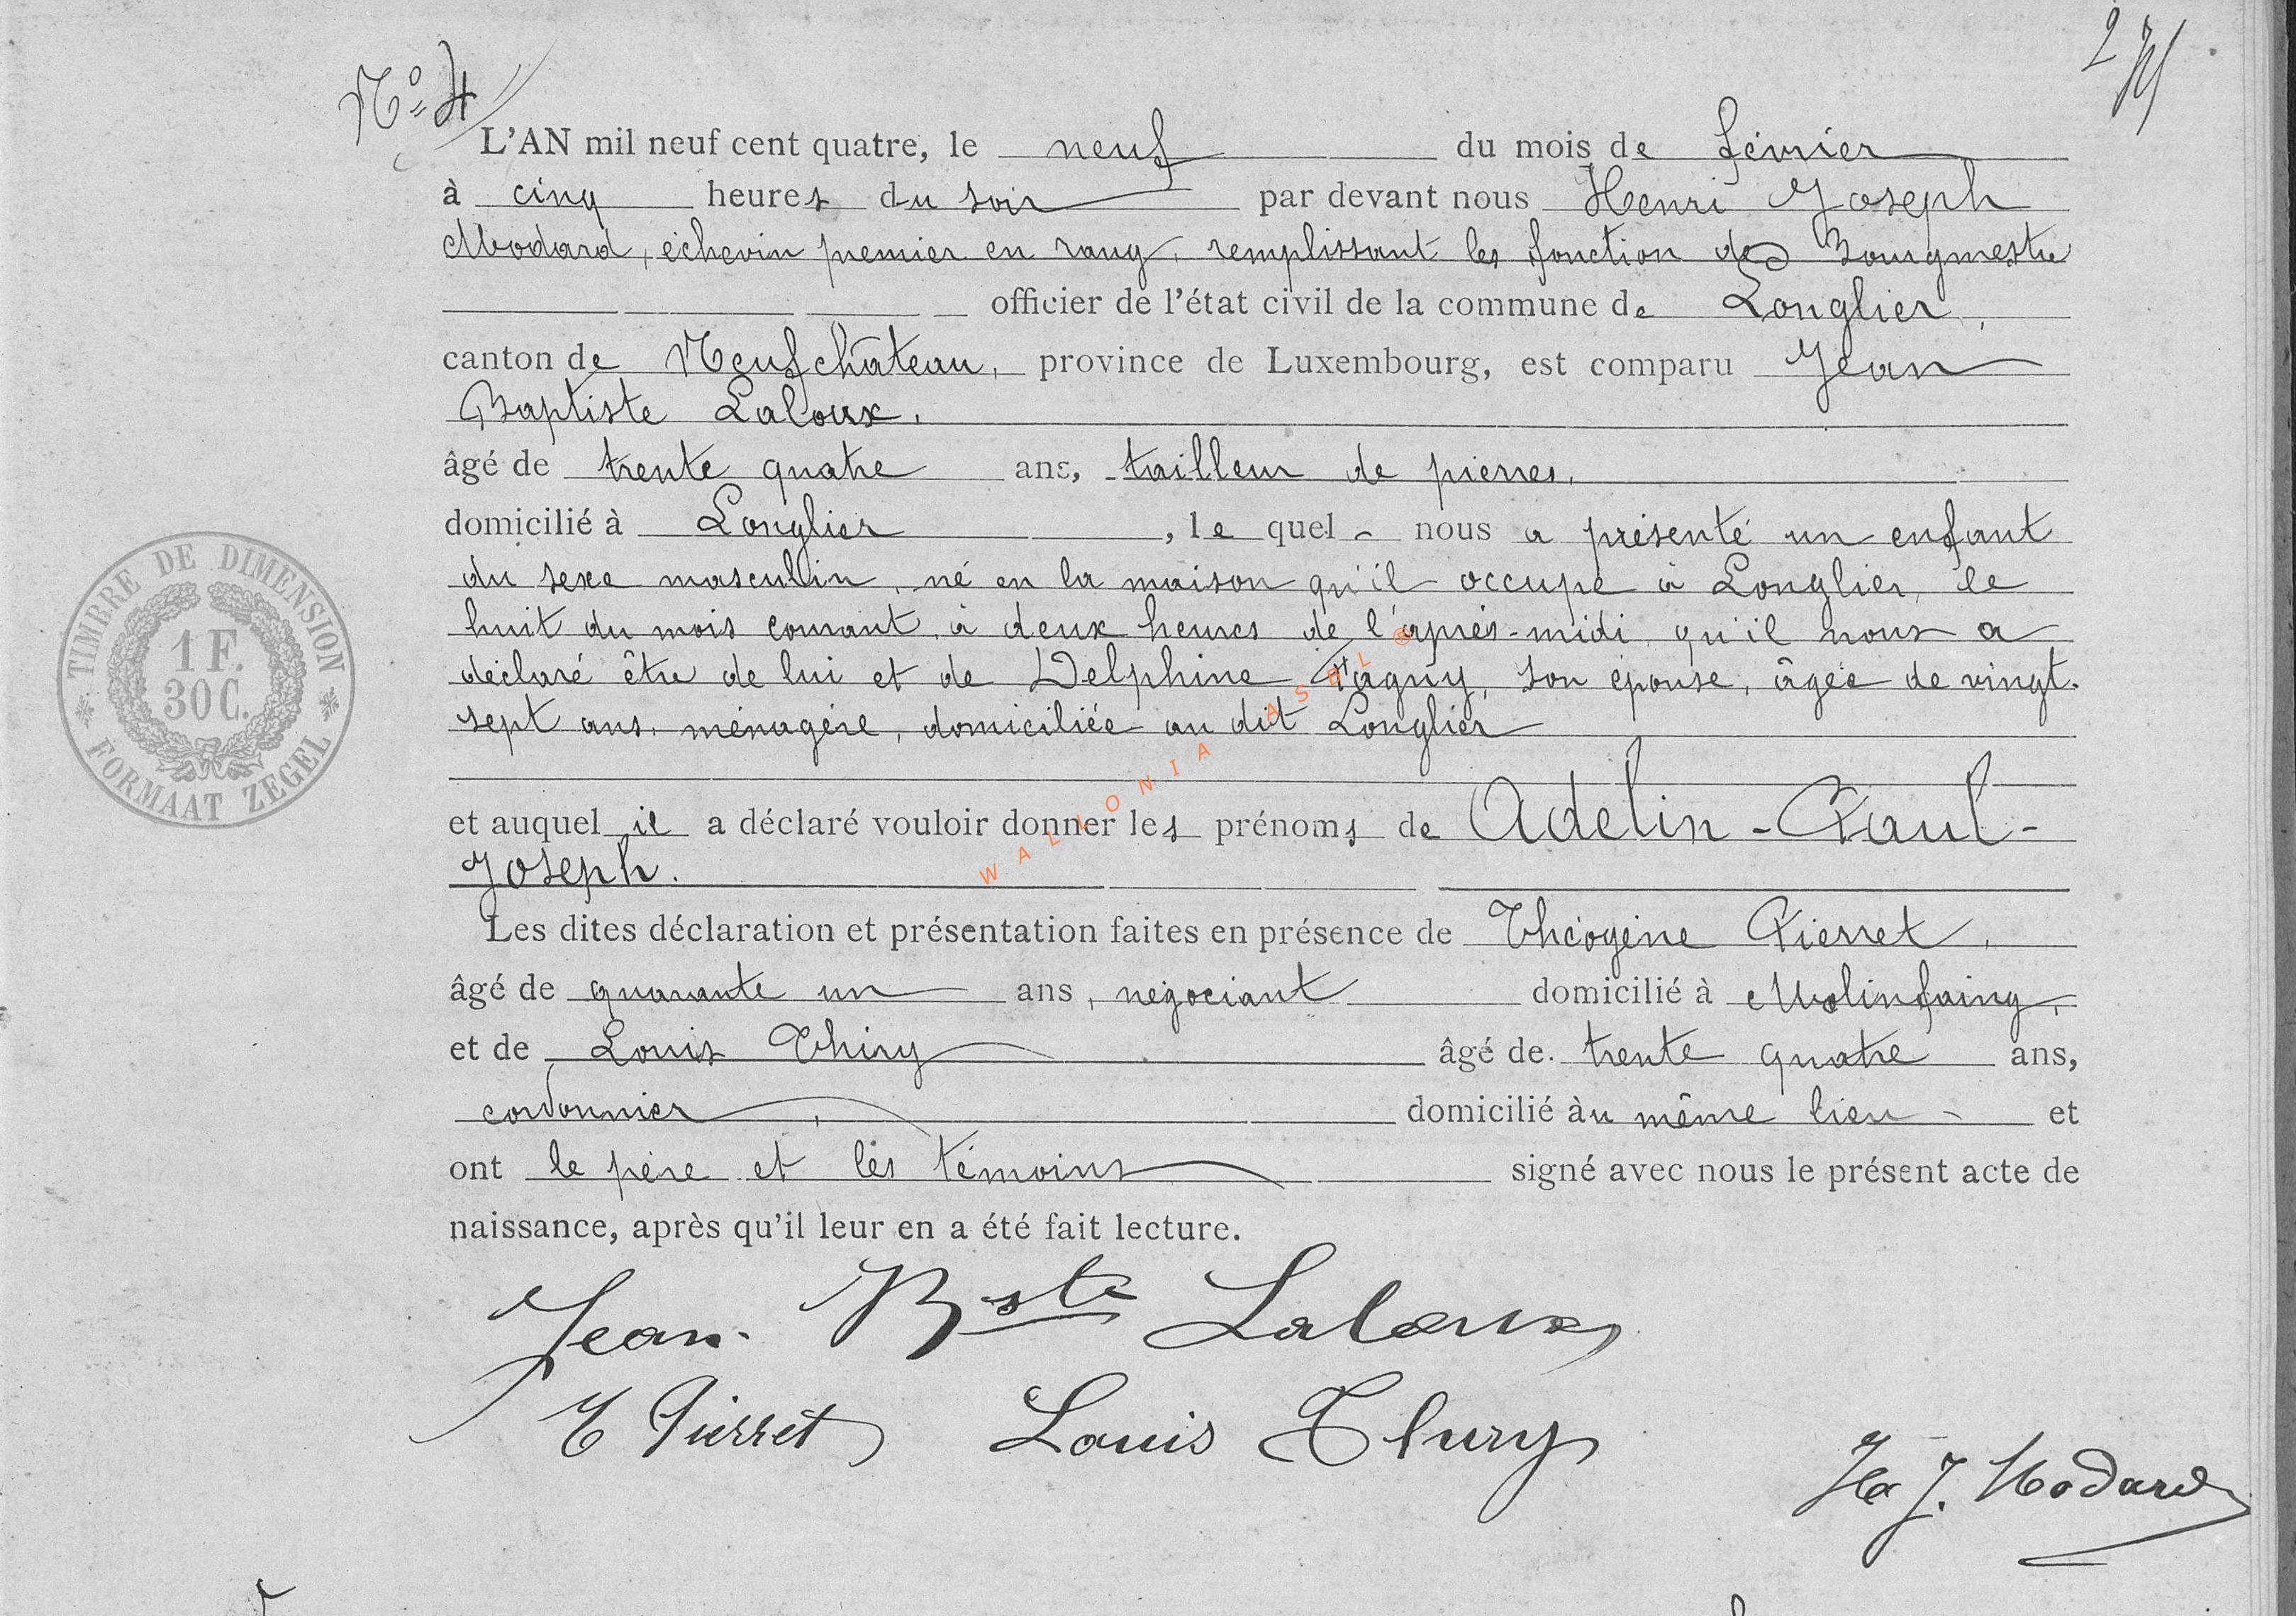 2
N° 4
L'AN mil neuf cent quatre, le neuf du mois de février
à cinq heures du soir par devant nous Henri Joseph
Modard, échevin premier en rang, remplissant les fonction de Bourgmestre
officier de l'état civil de la commune de Longlier,
canton de Neufchâteau, province de Luxembourg, est comparu Jean
Baptiste Laloux,
âgé de trente quatre ans, tailleur de pierres,
domicilié à Longlier, le quel nous a présenté un enfant
du sexe masculin, né en la maison qu'il occupe à Longlier, le
huit du mois courant, à deux heures de l'après-midi, qu'il nous a
déclaré être de lui et de Delphine Pagny, son épouse, âgée de vingt-
sept ans, ménagère, domiciliée au dit Longlier
et auquel il a déclaré vouloir donner les prénoms de Adelin-Paul-
Joseph.
Les dites déclaration et présentation faites en présence de Théogène Pierret,
âgé de quarante un ans, négociant domicilié à Molinfaing,
et de Louis Thiry âgé de trente quatre ans,
cordonnier, domicilié àu même lieu et
ont le père et les témoins signé avec nous le présent acte de
naissance, après qu'il leur en a été fait lecture.
Jean Bste Laloux
T Pierret Louis Thiry
H J. Modard
TIMBRE DE DIMENSION
1 F.
30 C.
FORMAAT ZEGEL
WALLONIA ASBL ®